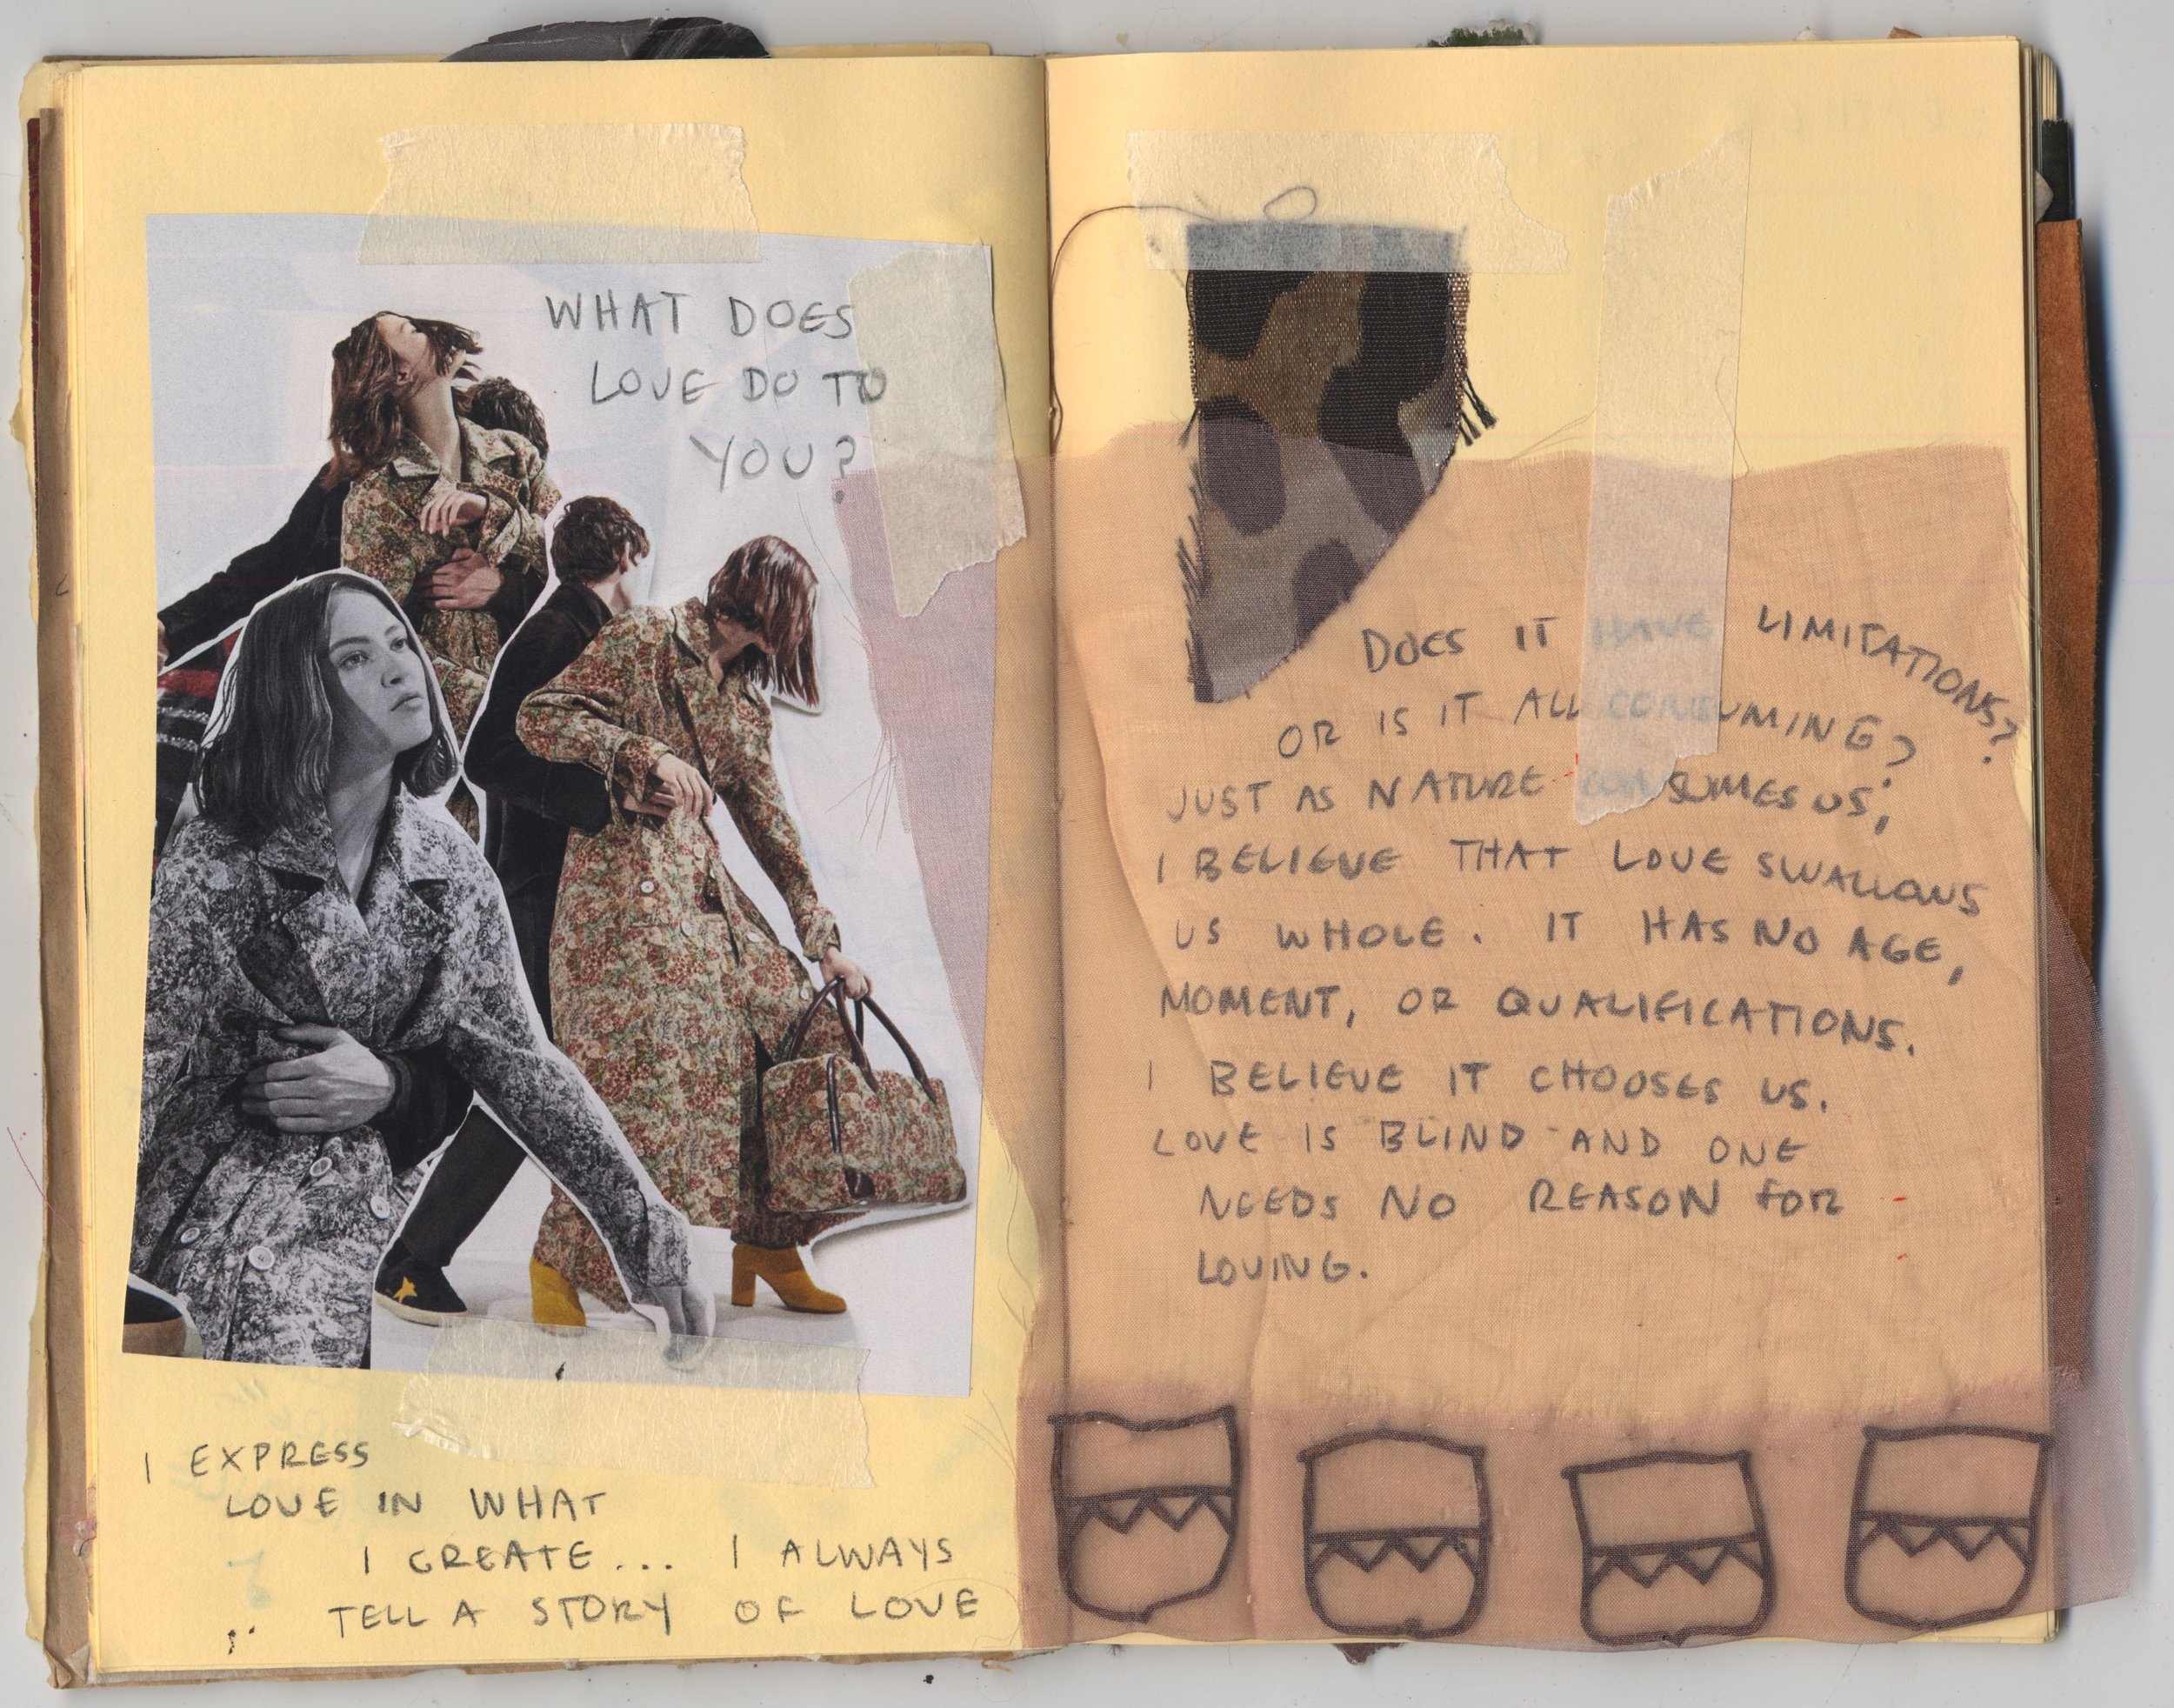 WHAT DOES
LOVE DO TO
YOU?
I EXPRESS
LOVE IN WHAT
I CREATE... I ALWAYS
TELL A STORY OF LOVE
DOES IT HAVE LIMITATIONS?
OR IS IT ALL CONSUMING?
JUST AS NATURE CONSUMES US,
I BELIEVE THAT LOVE SWALLOWS
US WHOLE. IT HAS NO AGE,
MOMENT, OR QUALIFICATIONS.
I BELIEVE IT CHOOSES US.
LOVE IS BLIND AND ONE
NEEDS NO REASON FOR
LOVING.